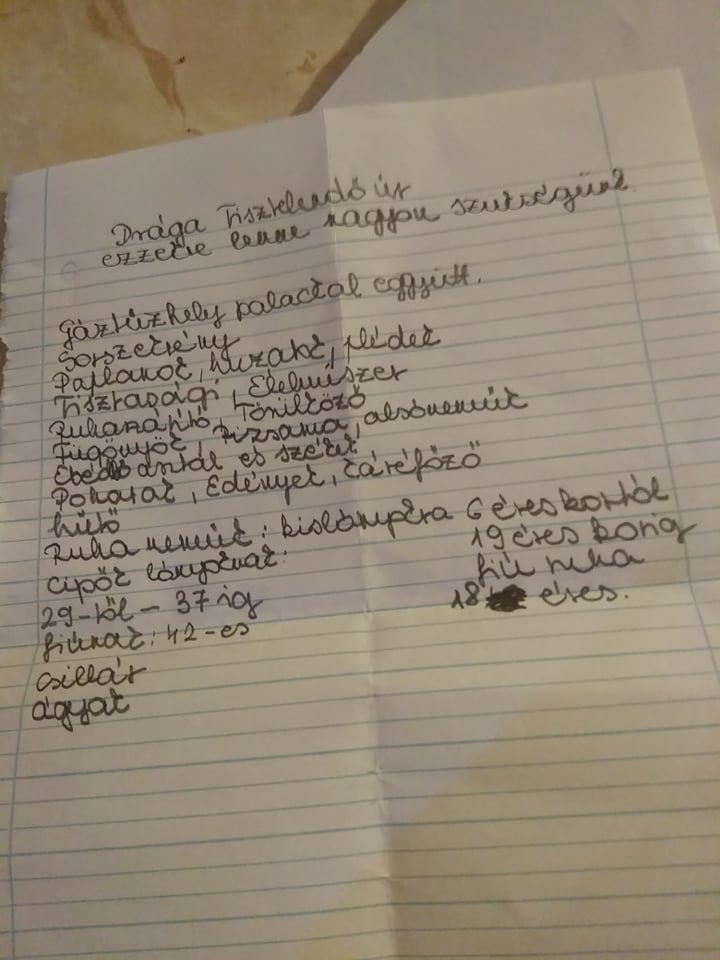 Drága Tisztelendő úr
ezzekre lenne nagyon szukségünk
Gáztűzhely palackal együtt.
Sorszekrény
Paplanok, huzatok, plédek
Tisztasági, Élelmiszer
Ruhaszáritó, Törülköző
Függönyök, Pizsama, alsónemük
Ebédlő asztal es székek
Poharak, Edények, kávéfőző
hűtő
Ruha nemük: kislányokra 6 éves kortól
19 éves korig
Cipők lányoknak:
fiú ruha
29-től - 37 ig
18 éves.
fiúnak: 42-es
Csillár
ágyak